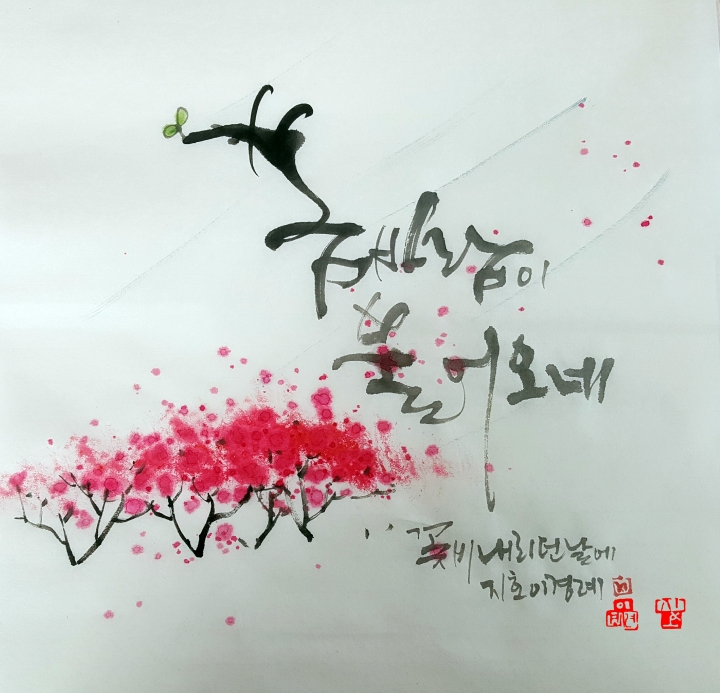 봄바람이
불어오네
꽃비 내리던 날에
지호 이경례